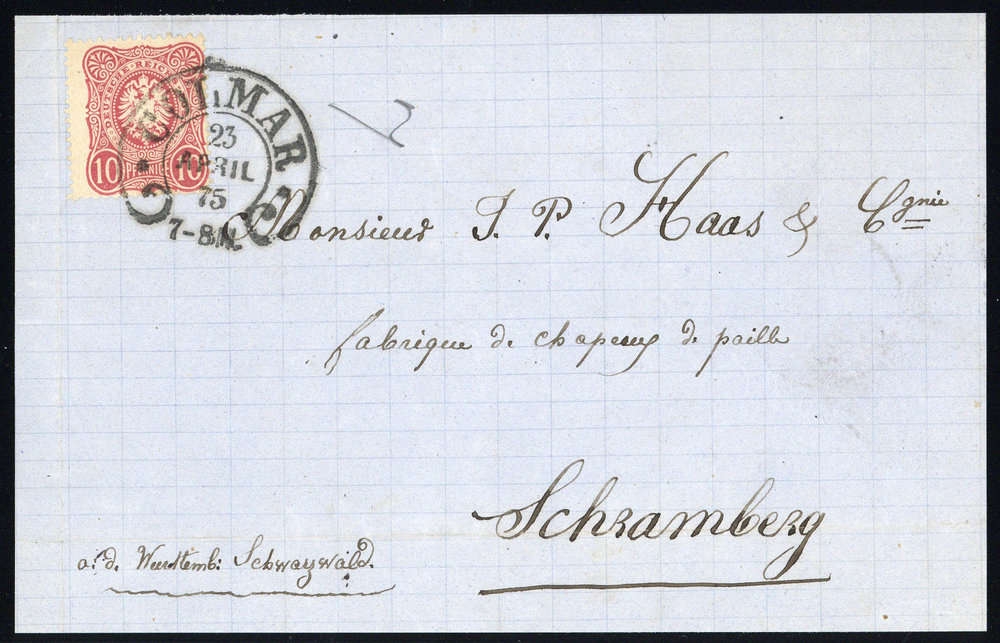 DEUTSCHE REICHS-POST
10 PFENNIGE 10
COLMAR
23
APRIL
75
7-8 N.
Monsieur J. P. Haas & Cgnie
fabrique de chapeux de paille
Schramberg
a. d. Wurttemb: Schwarzwald.